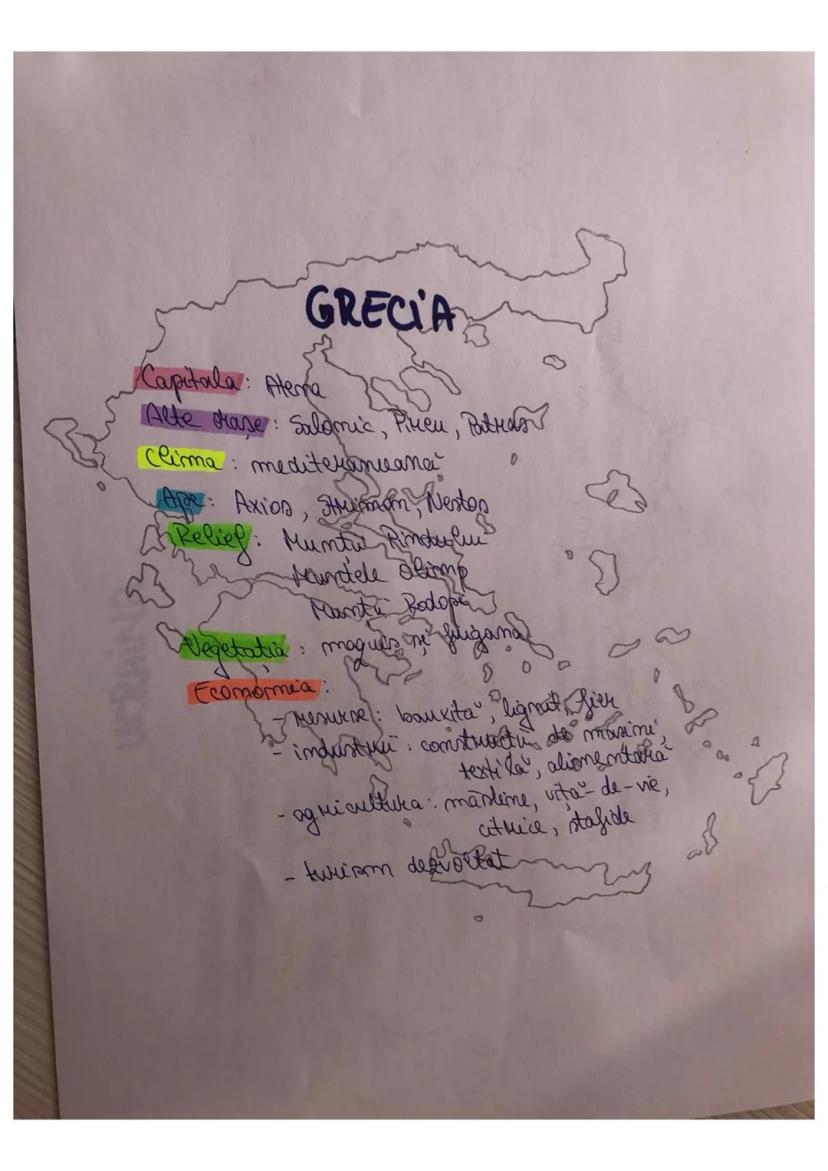 GRECIA
Capitala: Atena
Alte orașe: Salomic, Pireu, Patras
Clima: mediteraneană
Ape: Axios, Strimon, Nestos
Relief: Muntii Pindului
Muntele Olimp
Muntii Rodopi
Vegetatia: maquis și frigana
Economia:
- resurse: bauxită, lignit, fier
- industrii: constructii de masini,
textilă, alimentară
- agricultura: măsline, viță-de-vie,
citrice, stafide
- turism dezvoltat